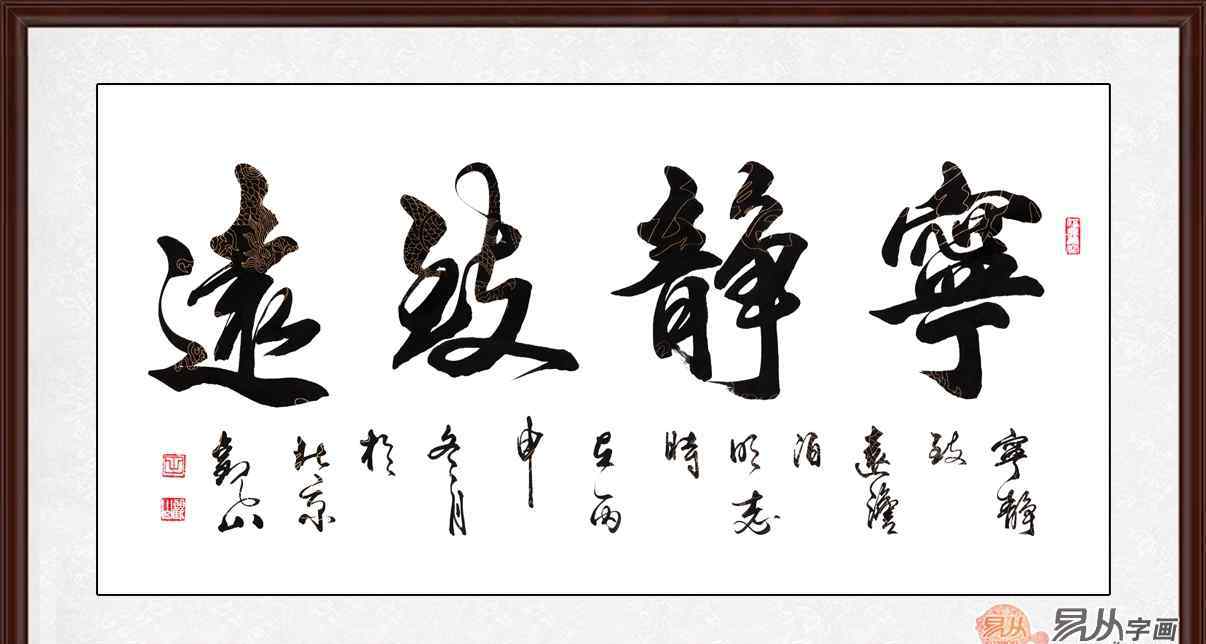 寧静致遠
寧静
致
遠澹
泊
明志
時
在丙
申
冬月
於
北京
山
易从
易从字画